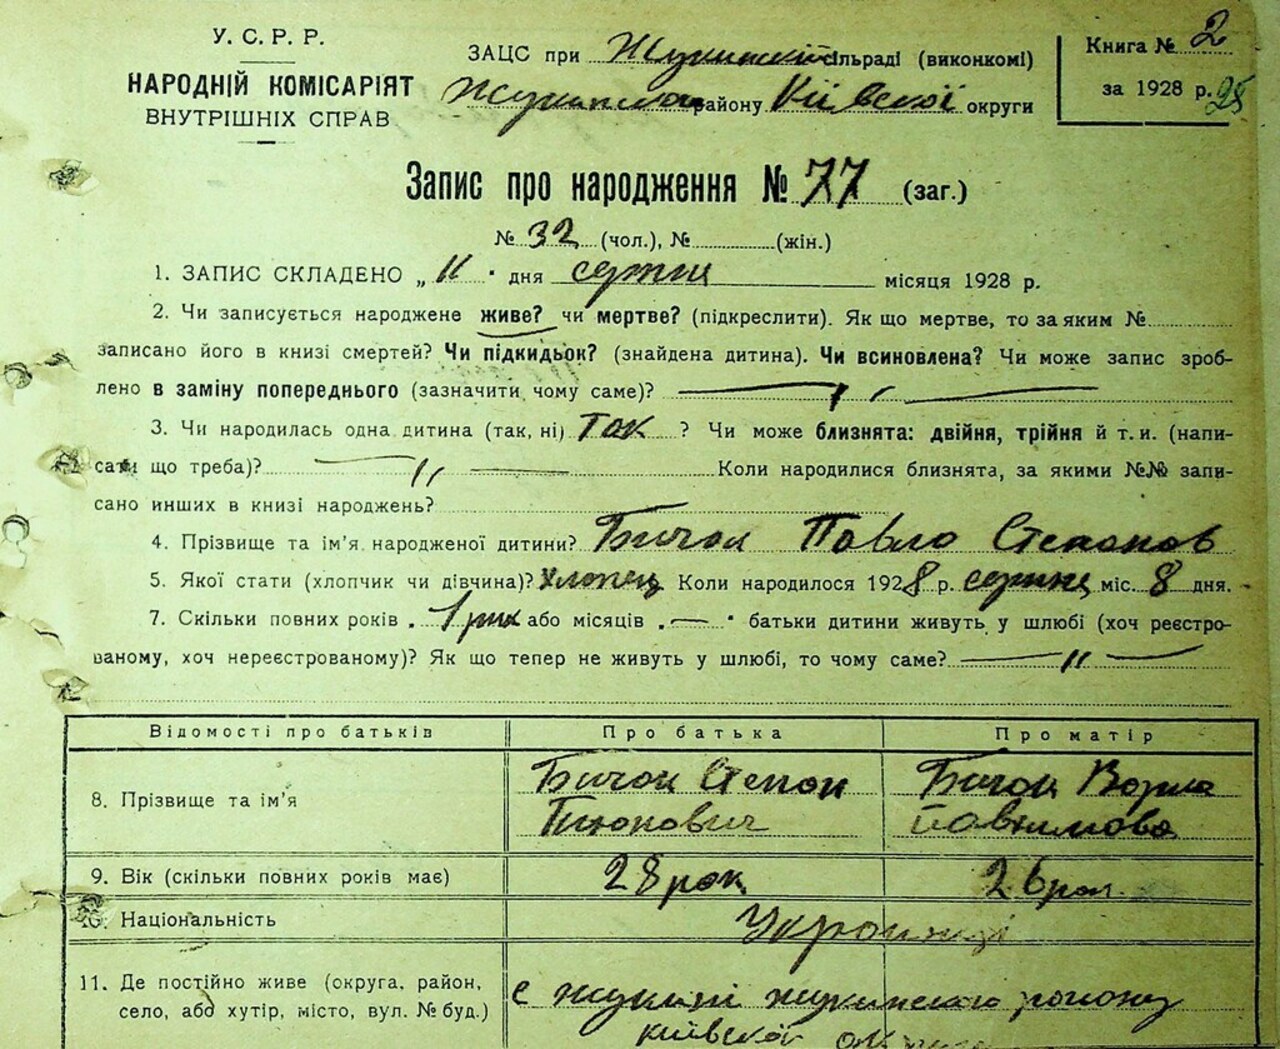 У. С. Р. Р.
НАРОДНІЙ КОМІСАРІЯТ
ВНУТРІШНІХ СПРАВ
ЗАЦС при Жукинській сільраді (виконкомі)
Жукинського району Київської округи
Книга № 2
за 1928 р.
25
Запис про народження № 77 (заг.)
№ 32 (чол.), № (жін.)
1. ЗАПИС СКЛАДЕНО „ 11 " дня серпня місяця 1928 р.
2. Чи записується народжене живе? чи мертве? (підкреслити). Як що мертве, то за яким №
записано його в книзі смертей? Чи підкидьок? (знайдена дитина). Чи всиновлена? Чи може запис зроб-
лено в заміну попереднього (зазначити, чому саме)? — „ —
3. Чи народилась одна дитина (так, ні) Так ? Чи може близнята: двійня, трійня й т. и. (напи-
сати що треба)? — „ — Коли народилися близнята, за якими №№ запи-
сано инших в книзі народжень?
4. Прізвище та ім'я народженої дитини? Бичок Павло Степанов
5. Якої стати (хлопчик чи дівчина)? Хлопець Коли народилося 1928 р. серпня міс. 8 дня.
7. Скільки повних років 1 рік або місяців — батьки дитини живуть у шлюбі (хоч реєстро-
ваному, хоч нереєстрованому)? Як що тепер не живуть у шлюбі, то чому саме? — „ —
Відомості про батьків Про батька Про матір
8. Прізвище та ім'я Бичок Степан Бичок
9. Вік (скільки повних років має) 28 рок 26 рок
10. Національність Українці
11. Де постійно живе (округа, район, с Жукині Жукинського району
село, або хутір, місто, вул. № буд.) Київської округи